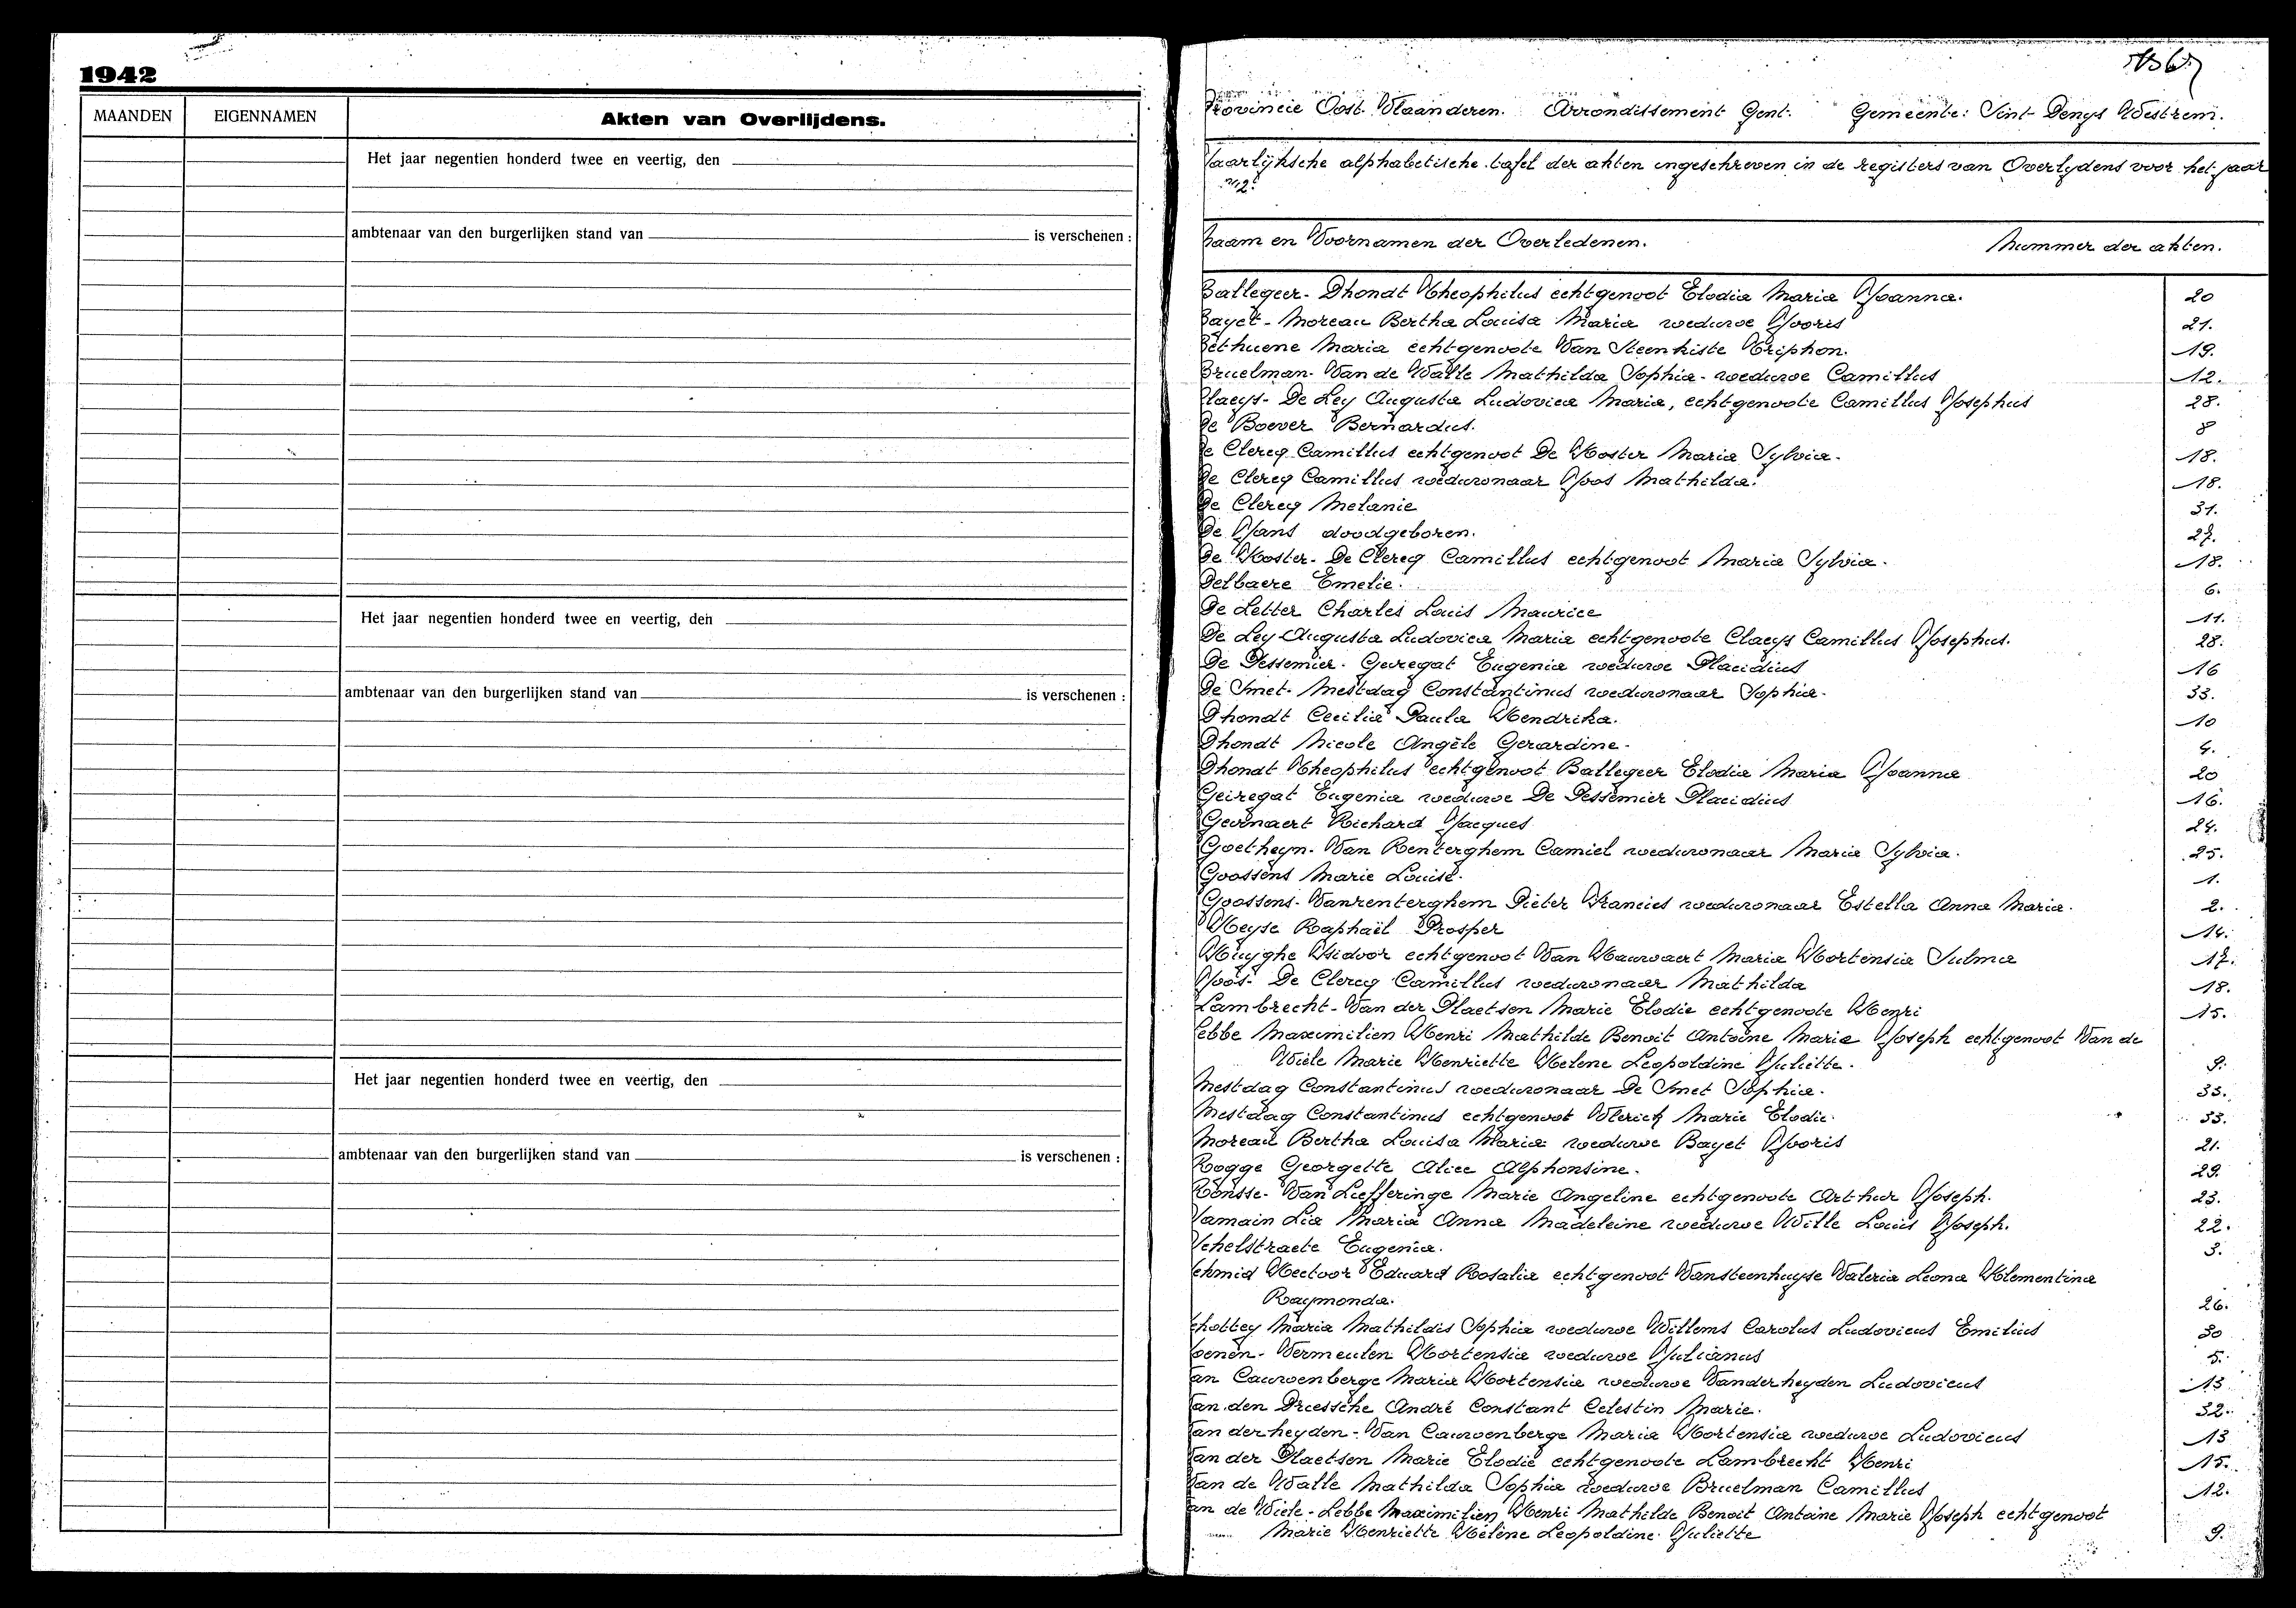 1942
MAANDEN EIGENNAMEN Akten van Overlijdens.
Het jaar negentien honderd twee en veertig, den
ambtenaar van den burgerlijken stand van is verschenen :
Het jaar negentien honderd twee en veertig, den
ambtenaar van den burgerlijken stand van is verschenen :
Het jaar negentien honderd twee en veertig, den
ambtenaar van den burgerlijken stand van is verschenen :
Provincie Oost-Vlaanderen. Arrondissement Gent. Gemeente: Sint-Denys Westrem.
Jaarlijksche alphabetische tafel der akten ingeschreven in de registers van Overlydens voor het jaar
Naam en Voornamen der Overledenen. Nummer der akten.
Ballegeer-Dhondt Theophilus echtgenoot Elodia Maria Joanna. 20
Bayet-Moreau Bertha Louisa Maria weduwe Jooris 21.
Bethuene Maria echtgenoote Van Steenkiste Triphon. 19.
Bruelman-Van de Walle Mathilda Sophia-weduwe Camillus 12.
Claeys-De Ley Augusta Ludovica Maria, echtgenoote Camillus Josephus 28.
De Boever Bernardus. 8
De Clercq Camillus echtgenoot De Koster Maria Sylvia. 18.
De Clercq Camillus weduwnaar Joos Mathilda. 18.
De Clercq Melanie 31.
De Jans doodgeboren. 27.
De Koster-De Clercq Camillus echtgenoot Maria Sylvia. 18.
Delbaere Emelie. 6.
De Letter Charles Louis Maurice 11.
De Ley Augusta Ludovica Maria echtgenoote Claeys Camillus Josephus. 28.
De Pessemier-Geiregat Eugenia weduwe Placidius 16
De Smet-Mestdag Constantinus weduwnaar Sophia. 33.
Dhondt Cecilia Paula Hendrika. 10
Dhondt Nicole Angèle Gerardine. 4.
Dhondt Theophilus echtgenoot Ballegeer Elodia Maria Joanna 20
Geiregat Eugenia weduwe De Pessemier Placidius 16.
Gevonaert Richard Jacques 24.
Goetheyn-Van Renterghem Camiel weduwnaar Maria Sylvia. 25.
Goossens Marie Louise. 1.
Goossens-Vanrenterghem Pieter Francies weduwnaar Estella Anna Maria. 2.
Heyse Raphaël Prosper 14.
Huyghe Isidoor echtgenoot Van Hauwaert Maria Hortensia Sulma 17.
Joos-De Clercq Camillus weduwnaar Mathilda 18.
Lambrecht-Van der Plaetsen Marie Elodie echtgenoote Henri 15.
Lebbe Maximilien Henri Mathilde Benoit Antoine Marie Joseph echtgenoot Van de
Wiele Marie Henriette Helene Leopoldine Juliette. 9.
Mestdag Constantinus weduwnaar De Smet Sophia. 33.
Mestdag Constantinus echtgenoot Vlerick Marie Elodie. 33.
Moreau Bertha Louisa Maria weduwe Bayet Jooris 21.
Rogge Georgette Alice Alphonsine. 29.
Ronsse-Van Liefferinge Marie Angeline echtgenoote Arthur Joseph. 23.
Samain Lia Maria Anna Madeleine weduwe Wille Louis Joseph. 22.
Schelstraete Eugenia. 3.
Schmid Hectoor Eduard Rosalia echtgenoot Vansteenhuyse Valeria Leona Klementina
Raymonda. 26.
Schottey Maria Mathildis Sophia weduwe Willems Carolus Ludovicus Emilius 30
Soenen-Vermeulen Hortensia weduwe Julianus 5.
Van Cauwenberge Maria Hortensia weduwe Vanderheyden Ludovicus 13
Van den Driessche André Constant Celestin Marie. 32.
Van derheyden-Van Cauwenberge Maria Hortensia weduwe Ludovicus 13
Van der Plaetsen Marie Elodie echtgenoote Lambrecht Henri 15.
Van de Walle Mathilda Sophia weduwe Bruelman Camillus 12.
Van de Wiele-Lebbe Maximilien Henri Mathilde Benoit Antoine Marie Joseph echtgenoot
Marie Henriette Hélène Leopoldine Juliette 9.